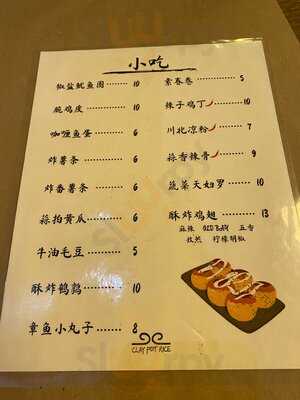 小吃
椒盐鱿鱼圈 10
脆鸡皮 10
咖喱鱼蛋 6
炸薯条 6
炸番薯条 6
蒜拍黄瓜 6
牛油毛豆 5
酥炸鹌鹑 10
章鱼小丸子 8
素春卷 5
辣子鸡丁 10
川北凉粉 7
蒜香辣骨 9
蔬菜天妇罗 10
酥炸鸡翅 13
麻辣 OLD BAY 五香
孜然 柠檬胡椒
CLAY POT RICE